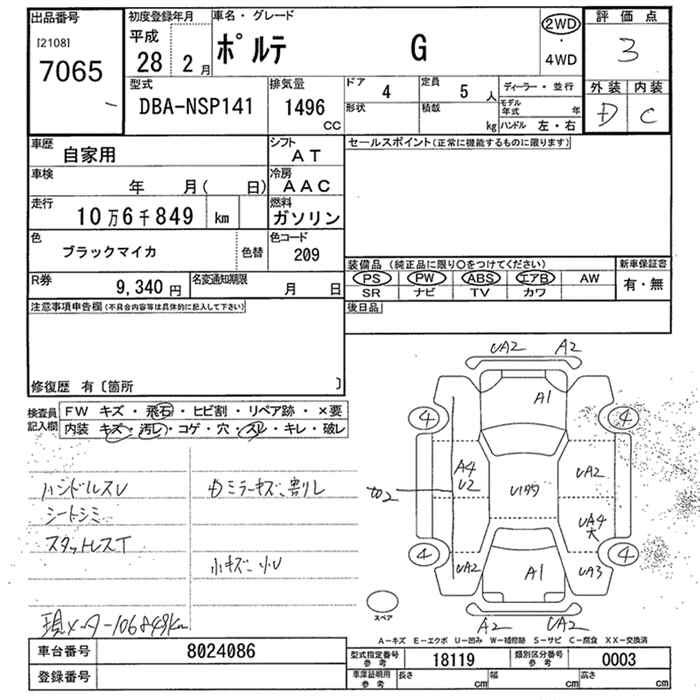 出品番号
[2108]
7065
初度登録年月
平成
28 2月
車名・グレード
ポルテ G
2WD
・
4WD
評価点
3
外装 内装
D C
型式
DBA-NSP141
排気量
1496
CC
ドア
4
定員
5 人
ディーラー・並行
形状
積載
kg
モデル年式 年
ハンドル 左・右
車歴
自家用
シフト
AT
セールスポイント(正常に機能するものに限ります)
車検
年 月( 日)
冷房
AAC
走行
10万6千849 km
燃料
ガソリン
色
ブラックマイカ
色替
色コード
209
装備品 (純正品に限り○をつけてください)
新車保証書
PS PW ABS エアB AW
有・無
SR ナビ TV カワ
R券
9,340 円
名変通知期限
月 日
後日品
注意事項申告欄(不具合内容等は具体的に記入して下さい)
修復歴 有〔箇所 〕
検査員記入欄
FW キズ・飛石・ヒビ割・リペア跡・×要
内装 キズ・汚レ・コゲ・穴・スレ・キレ・破レ
ハンドルスレ
シートシミ
スタットレスT
カミラーキズ、割レ
小キズ、小U
現メーター106849km
UA2 A2
A1
4 4
A4
U2
カ2
UA2
UA4
大
4 4
UA2
A1
UA3
A2 UA2
スペア
A-キズ E-エクボ U-凹み W-補修跡 S-サビ C-腐食 XX-交換済
車台番号
8024086
登録番号
型式指定番号
参考
18119
類別区分番号
参考
0003
車庫証明用
参考
長さ cm
幅 cm
高さ cm